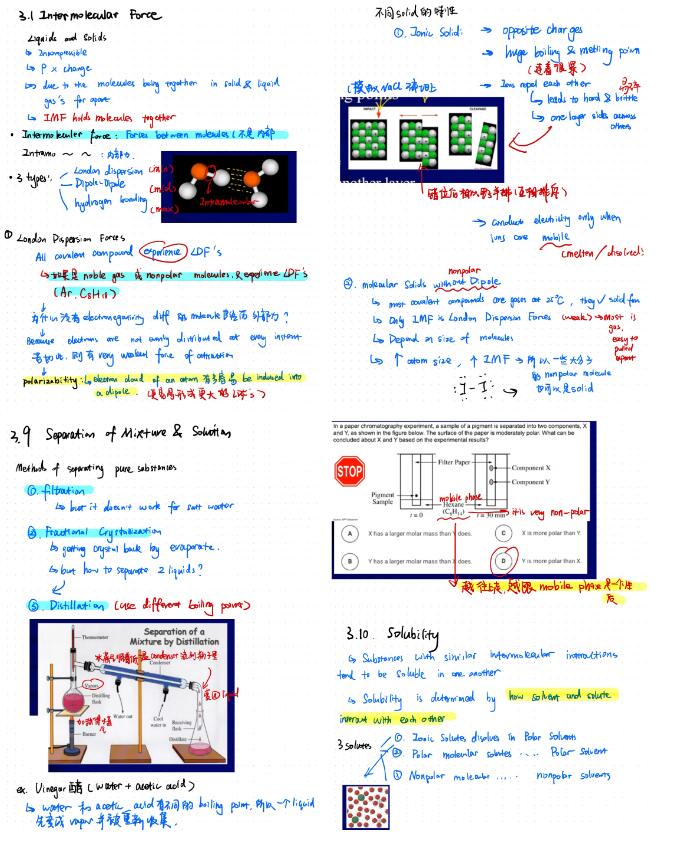 3.1 Intermolecular Force
Liquids and Solids
↳ Incompressible
↳ P x change
↳ due to the molecules being together in solid & liquid
gas's far apart
↳ IMF holds molecules together
• Intermolecular force: Forces between molecules (不是内部
Intramo ~ ~ : 内部的.
• 3 types:
London dispersion (min)
Dipole-Dipole (mid)
hydrogen bonding (max)
Intramolecular
① London Dispersion Forces
All covalent compound experience LDF's
↳ 如果是 noble gas 或 nonpolar molecules, & experience LDF's
(Ar, C8H18)
为什么没有electronegativity diff 的 molecule
Because electrons are not evenly distributed at every instant
very weak force of attraction
polarizability: ↳ electron cloud of an atom 有多容易 be induced into
a dipole. (更易形成更大的 LDF's)
不同solid的特性
①. Ionic Solid:
→ opposite charges
→ huge boiling & melting point
→ Ions repel each other
↳ leads to hard & brittle
↳ one layer slides across
others
NaCl
another layer
→ conduct electricity only when
ions are mobile
(melten / disolved)
nonpolar
②. molecular Solids without Dipole
↳ most covalent compounds are gases at 25°C, they ✓ solid form
↳ Only IMF is London Dispersion Forces (weak) → most is
gas,
easy to
pulled
apart
↳ Depend on size of molecules
↳ ↑ atom size, ↑ IMF → 所以一些大分子
的 nonpolar molecule
也可以是solid
:I-I:
3.9 Separation of Mixture & Solution
Methods of separating pure substances
①. filtration
↳ but it doesn't work for salt water
②. Fractional Crystallization
↳ getting crystal back by evaporate.
↳ but how to separate 2 liquids?
③. Distillation (use different boiling points)
Separation of a
Mixture by Distillation
Thermometer
Condenser
Vapors
Distilling
flask
Water out
Cool
water in
Receiving
flask
Burner
Distillate
变回 liquid
ex. Vinegar 醋 (water + acetic acid)
↳ water 和 acetic acid 有不同的 boiling point, 所以一个liquid
先变成 vapor 并被重新收集.
In a paper chromatography experiment, a sample of a pigment is separated into two components, X
and Y, as shown in the figure below. The surface of the paper is moderately polar. What can be
concluded about X and Y based on the experimental results?
STOP
Filter Paper
Component X
Component Y
Pigment
Sample
mobile phase
Hexane
(C6H14)
→ it is very non-polar
t = 0
t = 30 min
A X has a larger molar mass than Y does.
C X is more polar than Y.
B Y has a larger molar mass than X does.
D Y is more polar than X.
越往上走, 越跟 mobile phase 是一个性
质
3.10. Solubility
↳ Substances with similar intermolecular interactions
tend to be soluble in one another
↳ Solubility is determined by how solvent and solute
interact with each other
3 solutes
①. Ionic Solutes disolves in Polar Solvents
②. Polar molecular solutes ..... Polar Solvent
③ Nonpolar molecular ..... nonpolar solvents